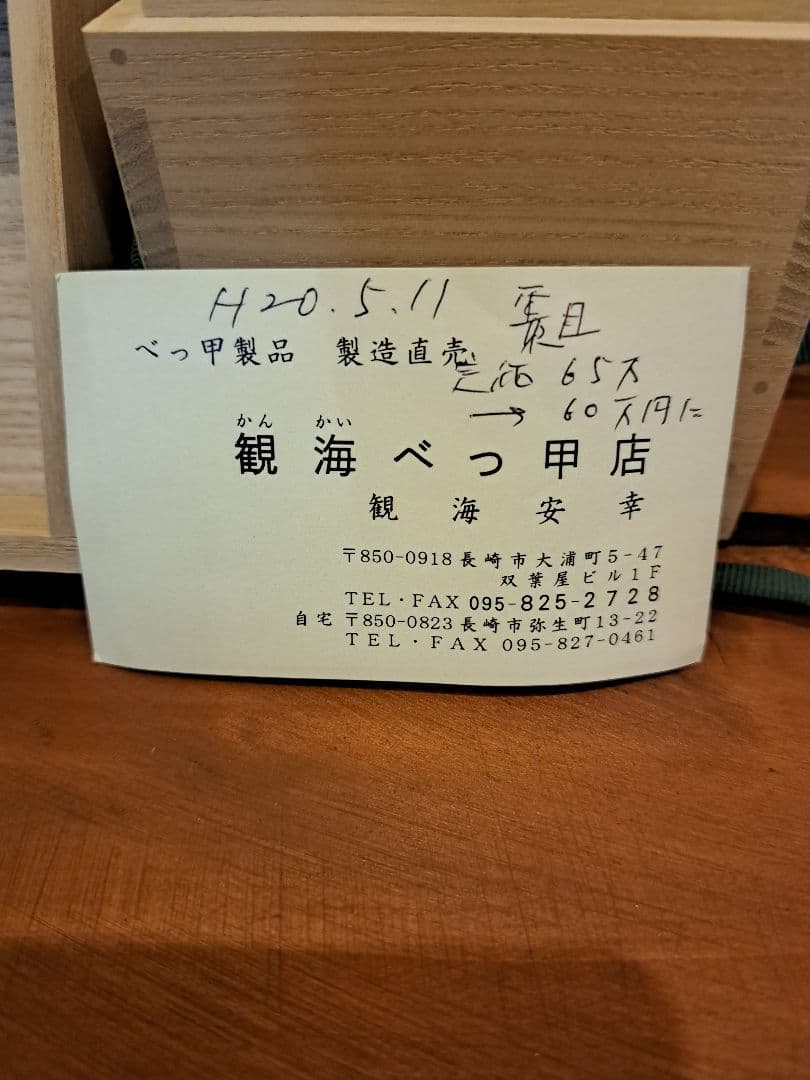 H20.5.11
べっ甲製品 製造直売
定価 65万
→ 60万円に
かん かい
観海べっ甲店
観海安幸
〒850-0918 長崎市大浦町5-47
双葉屋ビル1F
TEL・FAX 095-825-2728
自宅 〒850-0823 長崎市弥生町13-22
TEL・FAX 095-827-0461